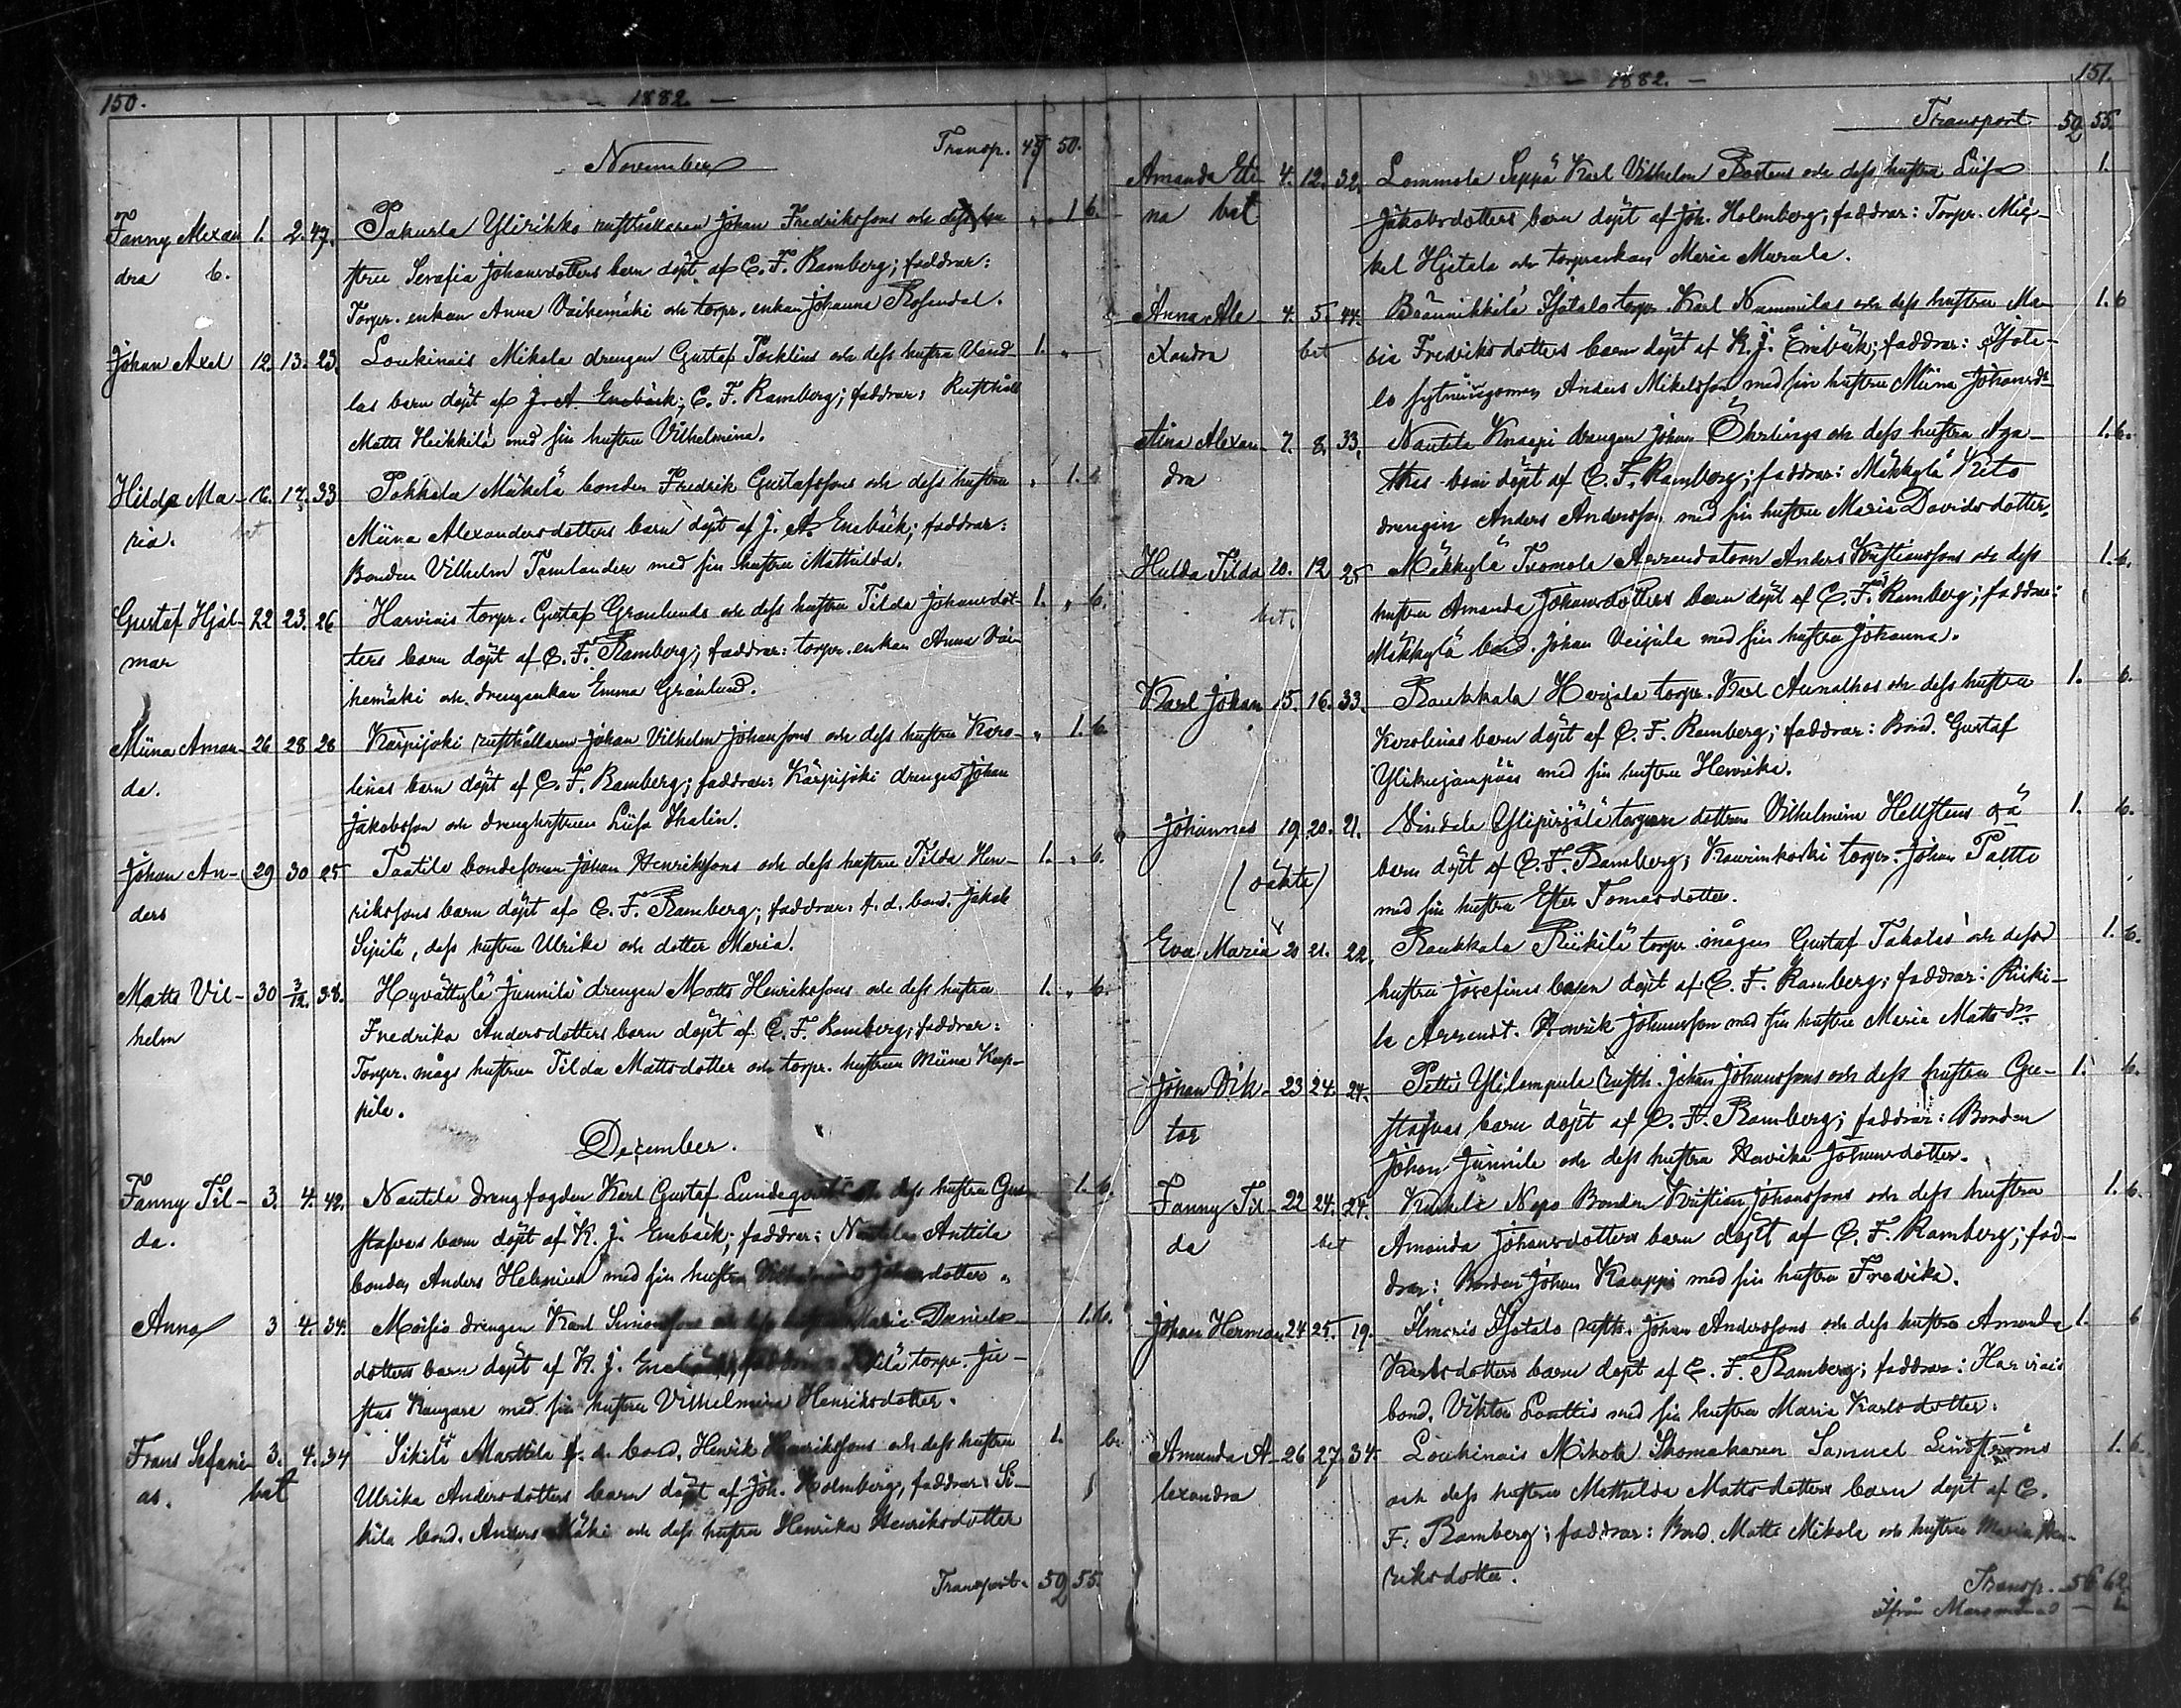 150.
- 1882. -
November Transp. 45 50.
Fanny Alexan 1. 2. 47. Pakurla Ylirihko rusthållaren Johan Fredrikssons och dess hu " 1 b.
dra b. stru Serafia Johansdotters barn döpt af C. F. Ramberg; faddrar:
Torpr. enkan Anna Vaihemäki och torpr. enkan Johanna Rosendal.
Johan Axel 12. 13. 23. Loukinais Mikola drengen Gustaf och dess hustru Vend- 1. "
las barn döpt af J. A. Enebäck; C. F. Ramberg; faddrar: Rusthåll
Matts Heikkilä med sin hustru Vilhelmina.
Hilda Ma- 16. 17. 33 Pahkala Mäkelä bonden Fredrik Gustafssons och dess hustru " 1. b
ria. bet Miina Alexandersdotters barn döpt af J. A. Enebäck; faddrar:
Bonden Vilhelm Tamlander med sin hustru Mathilda.
Gustaf Hjal- 22 23. 26 Harvias torpr. Gustaf Granlunds och dess hustru Tilda Johansdot- 1. " b.
mar ters barn döpt af C. F. Ramberg; faddrar: torpr. enkan Anna Vai-
hemäki och drengenkan Emma Granlund.
Miina Aman- 26 28 28 Karpijoki rusthållaren Johan Vilhelm Johanssons och dess hustru Karo- " 1. b
da. linas barn döpt af C. F. Ramberg; faddrar: Karpijoki drengen Johan
Jakobsson och drenghustrun Liisa Thalin.
Johan An- 29 30 25 Taatilo bondesonen Johan Henrikssons och dess hustru Tilda Hen- 1. " b.
ders rikssons barn döpt af C. F. Ramberg; faddrar: f. d. bond. Jakob
Sipilä, dess hustru Ulrika och dotter Maria.
Matts Vil- 30 3/12. 38. Hyvättylä Junnila drengen Matts Henrikssons och dess hustru 1. " b.
helm Fredrika Andersdotters barn döpt af C. F. Ramberg; faddrar:
Torpr. mågs hustrun Tilda Mattsdotter och torpr. hustrun Miina Karp-
pila.
December.
Fanny Til- 3. 4. 42. Nautela drengfogden Karl Gustaf Lundeqvists och dess hustru Gu- 1. b.
da. stafvas barn döpt af K. J. Enebäck; faddrar: Nautela Anttila
bonden Anders Helenius med sin hustru Vilhelmina Johansdotter.
Anna 3 4. 34. Moisio drengen Karl Simonssons och dess hustru Maria Daniels- 1. b.
dotters barn döpt af K. J. Enebäck; faddrar: torpr. Ju-
stus Kangare med sin hustru Vilhelmina Henriksdotter.
Frans Sefani- 3. 4. 34 Sikilä Marttila f. d. bond. Henrik Henrikssons och dess hustru 1. b.
as. bet Ulrika Andersdotters barn döpt af Joh. Holmberg, faddrar: Si-
kila bond. Anders Mäki och dess hustru Henrika Henriksdotter
Transport. 50 55.
2
- 1882. - 151.
Transport 50 55.
2
Amanda Ste- 4. 12. 32. Lommola Seppä Karl Vilhelm Rostens och dess hustru Liisa 1.
na bet Jakobsdotters barn döpt af Joh. Holmberg; faddrar: Torpr. Mic-
kel Hjetala och torpareenkan Maria Murula.
Anna Ale- 4. 5. 44. Isotalo torpr. Karl Nummilas och dess hustru Ma- 1. b
xandra bet ria Fredriksdotters barn döpt af K. J. Enebäck; faddrar: Isota-
lo sytningsman Anders Mikelsson med sin hustru Miina Johansdr
Aina Alexan- 7. 8. 33. Nautela Knaapi drengen Johan Öhrlings och dess hustru Aga- 1. b.
dra thas barn döpt af C. F. Ramberg; faddrar: Mäkkylä Kito
drengen Anders Andersson med sin hustru Maria Davidsdotter.
Hulda Tilda 10. 12 25 Mäkkylä Tuomola Arrendatorn Anders Kristianssons och dess 1. b.
bet. hustru Amanda Johansdotters barn döpt af C. F. Ramberg; faddrar:
Mäkkylä bond. Johan Veijula med sin hustru Johanna.
Karl Johan 15. 16. 33. Raukkala Harjala torpr. Karl Aunalhos och dess hustru 1. b.
Karolinas barn döpt af C. F. Ramberg; faddrar: Bond. Gustaf
med sin hustru Henrika.
Johannes 19. 20. 21. Vindala Ylipirjälä torpare dottren Vilhelmina Hellstens oä 1. b.
(oäkta) barn döpt af C. F. Ramberg; Kaurinkoski torpr. Johan Paltti
med sin hustru Ester Tomasdotter.
Eva Maria 20 21. 22. Raukkala Riikilä torpr. mågen Gustaf Takalas och dess 1. b.
hustru Josefinas barn döpt af C. F. Ramberg; faddrar: Riiki-
la Arrendt. Henrik Johansson med sin hustru Maria Matts dr
Johan Vik- 23 24. 24. Pettis Ylilempula rusth. Johan Johanssons och dess hustru Gu- 1. b.
tor stafvas barn döpt af C. F. Ramberg; faddrar: Bonden
Johan Junnila och dess hustru Henrika Johansdotter.
Fanny Til- 22 24. 24. Kukila Nepo Bonden Kristian Johanssons och dess hustru 1. b.
da bet Amanda Johansdotters barn döpt af C. F. Ramberg; fad-
drar: Bonden Johan Kauppi med sin hustru Fredrika.
Johan Herman 24 25. 19. Ilmaris Isotalo rusth. Johan Anderssons och dess hustru Amanda 1. b
Karlsdotters barn döpt af C. F. Ramberg; faddrar: Harvais
bond. Viktor Lauttis med sin hustru Maria Karlsdotter.
Amanda A- 26 27. 34. Loukinais Mikola Skomakaren Samuel Lindströms 1. b.
lexandra och dess hustru Mathilda Mattsdotters barn döpt af C.
F. Ramberg; faddrar: Bond. Matts Mikola och hustru Maria Hen-
riksdotter.
Transp. 56 62